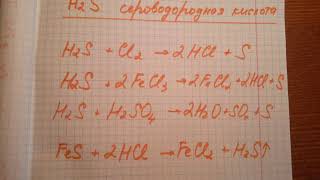 H₂S сероводородная кислота
H₂S + Cl₂ → 2HCl + S
H₂S + 2FeCl₃ → 2FeCl₂ + 2HCl + S
H₂S + H₂SO₄ → 2H₂O + SO₂ + S
FeS + 2HCl → FeCl₂ + H₂S↑